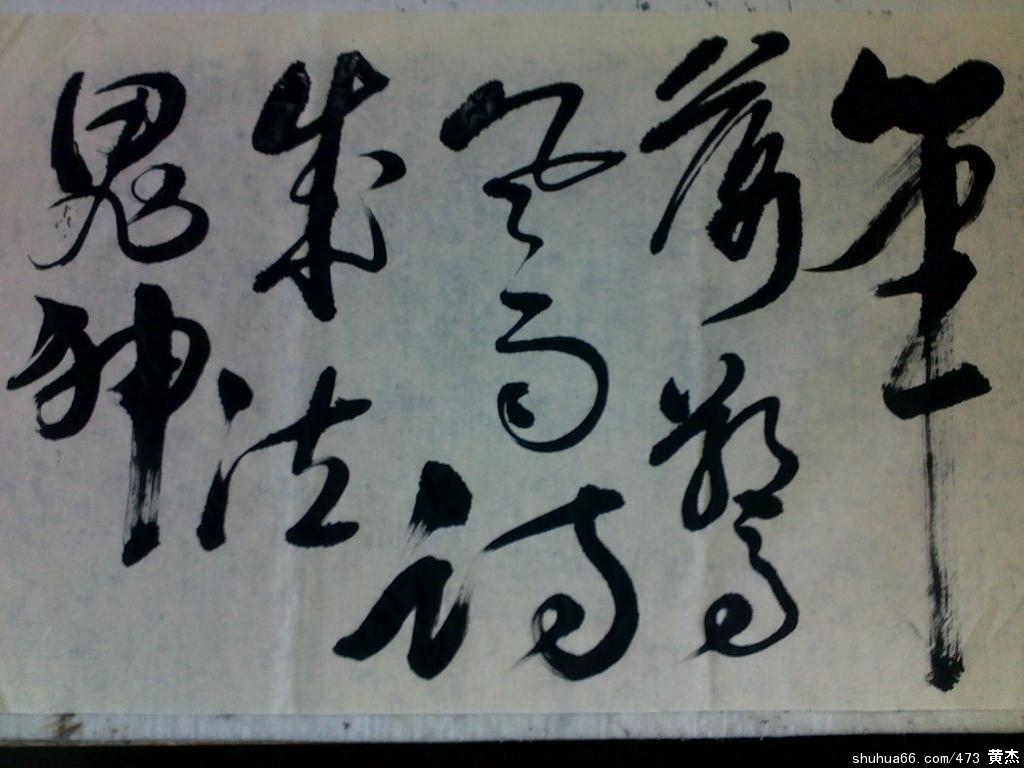 筆
落驚
風雨詩
成泣
鬼神
shuhua66.com/473 黄杰